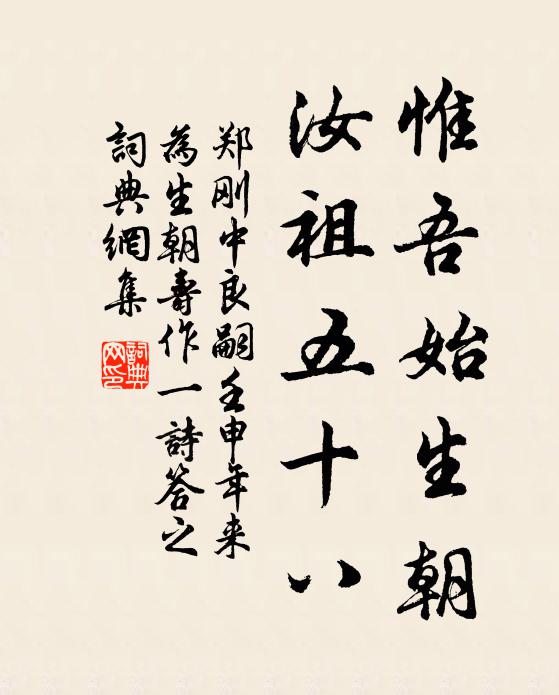 惟吾始生朝
汝祖五十八
郑刚中良嗣壬申年来
為生朝壽作一詩答之
詞典網集
詞典網印